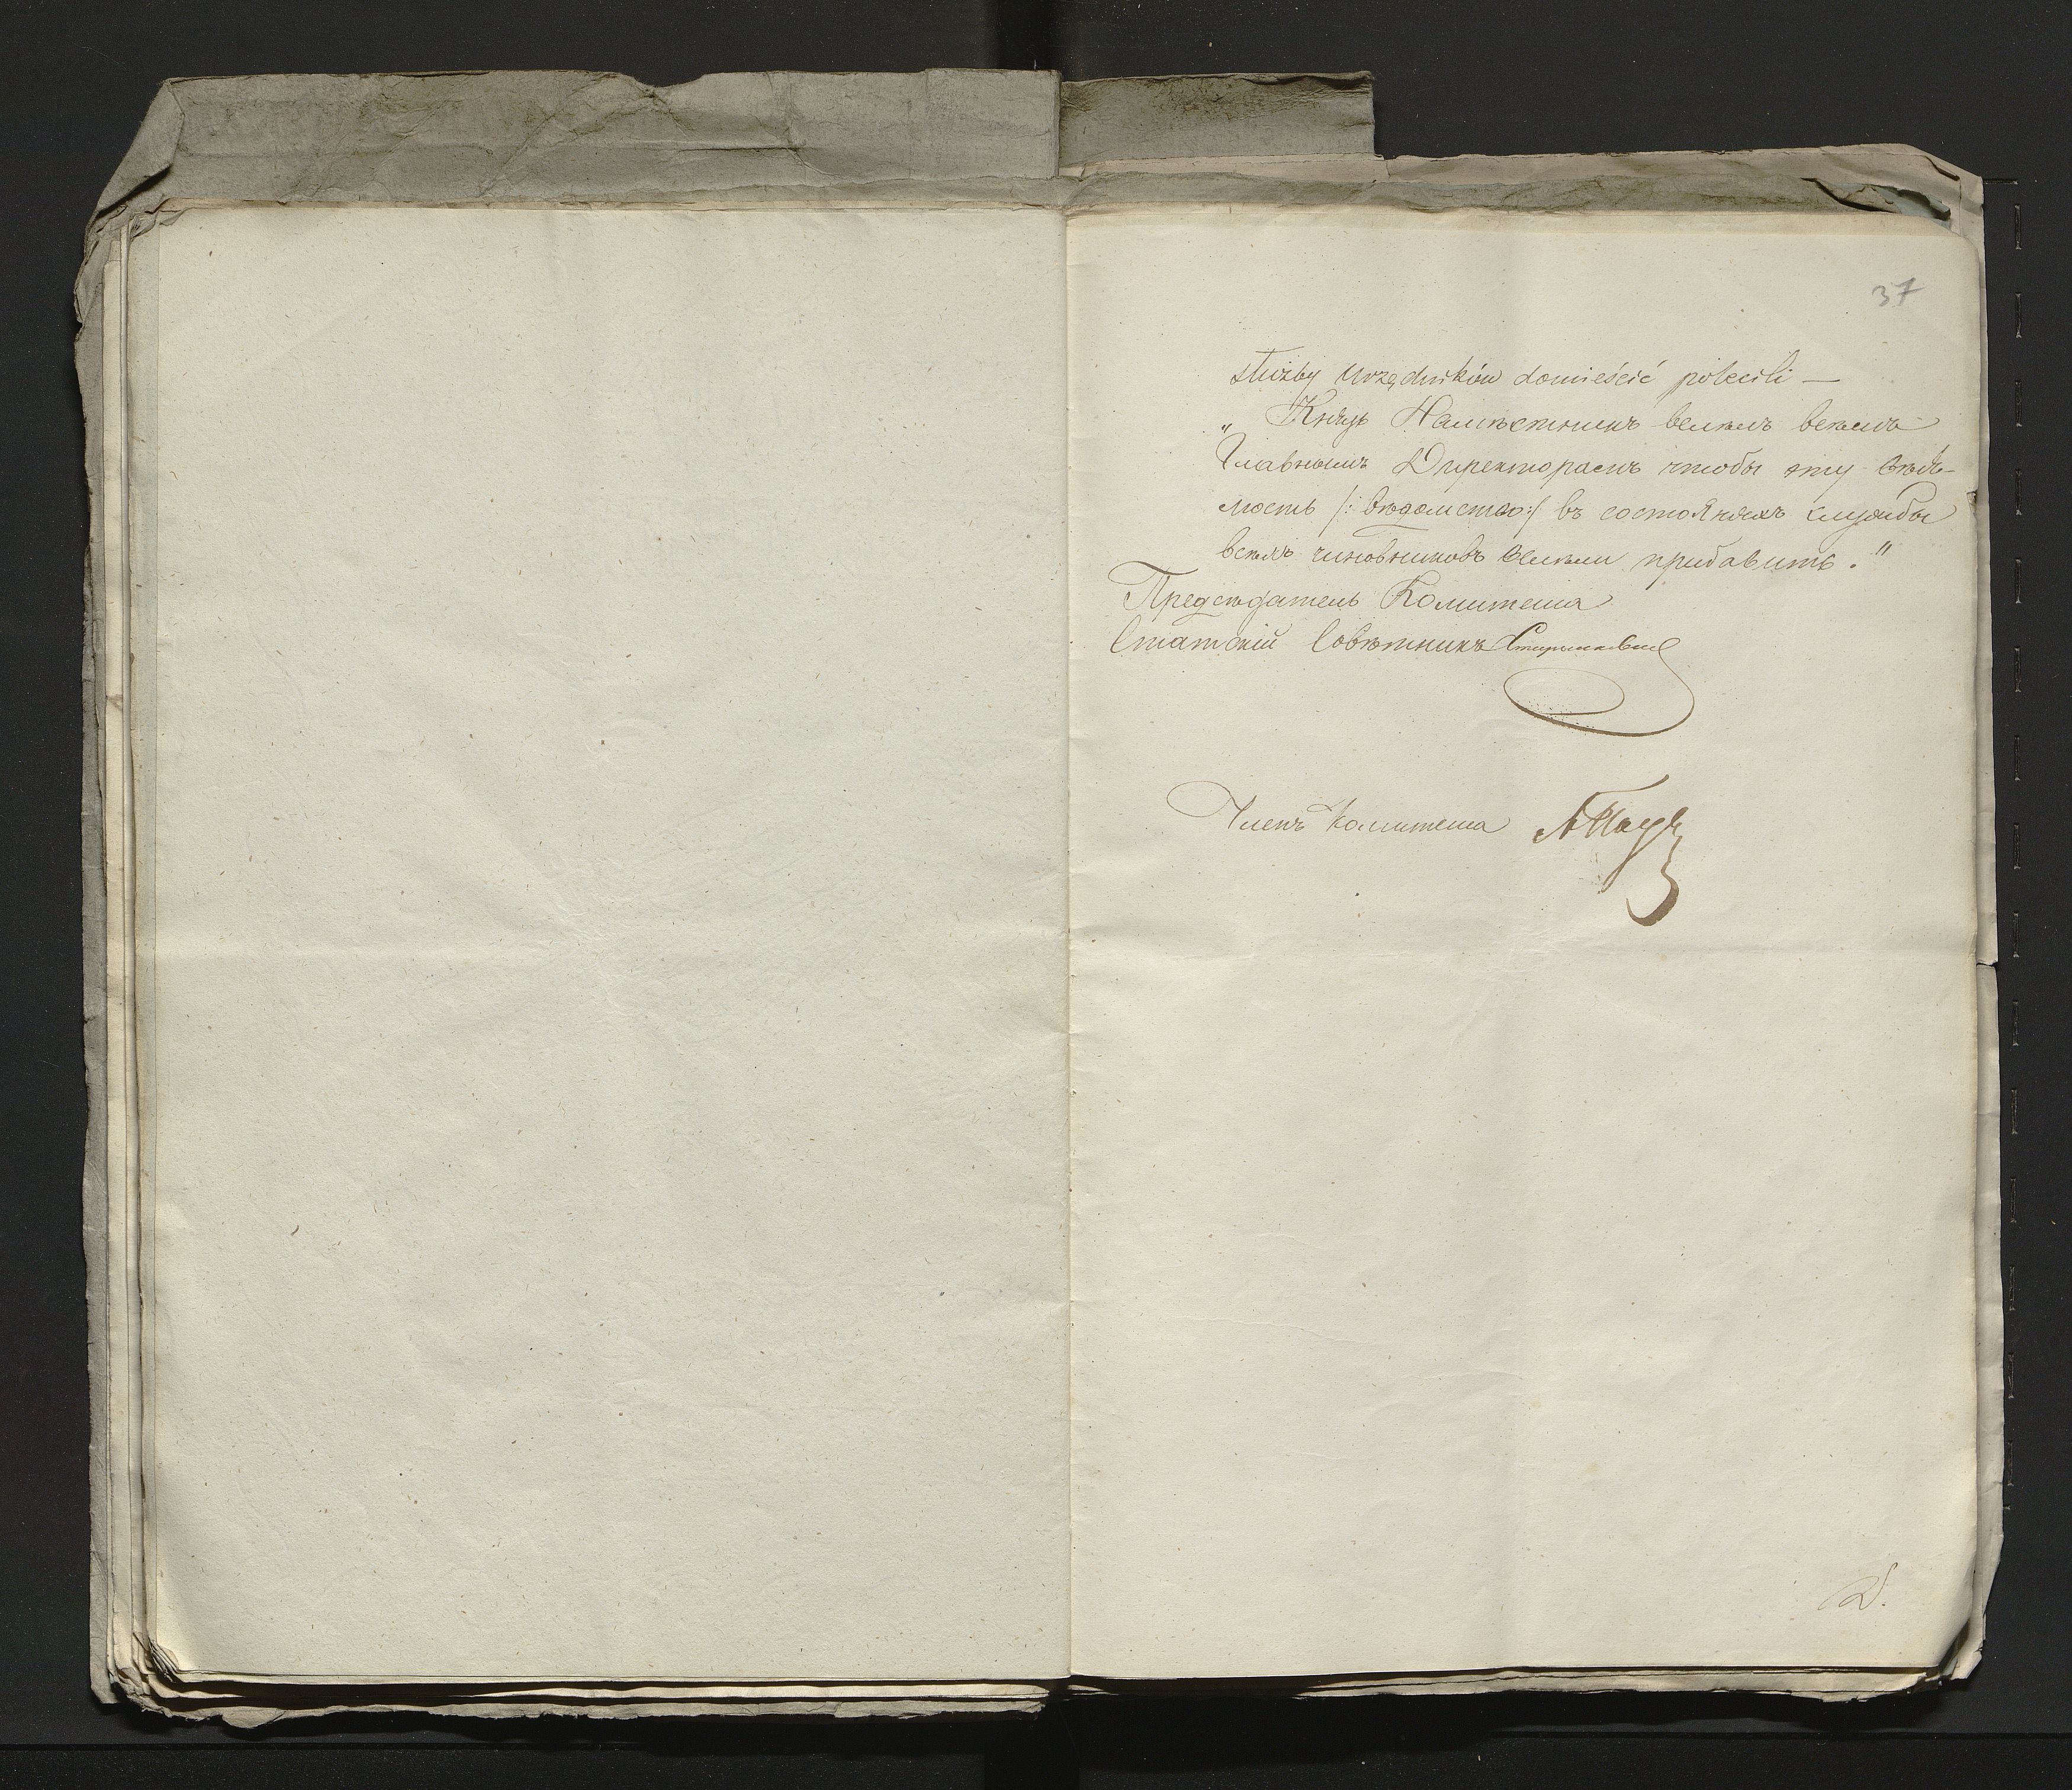 37
służby Urzędników domieścić polecili —
„ Князь Намѣстникъ велѣлъ всѣмъ
Главнымъ Директорамъ чтобы эту вѣдѣ-
мость /: вѣдомство :/ въ состояніяхъ службы
всѣхъ чиновниковъ велѣли прибавить. "
Предсѣдатель Комитета
Статскій Совѣтникъ
Членъ Комитета
D.